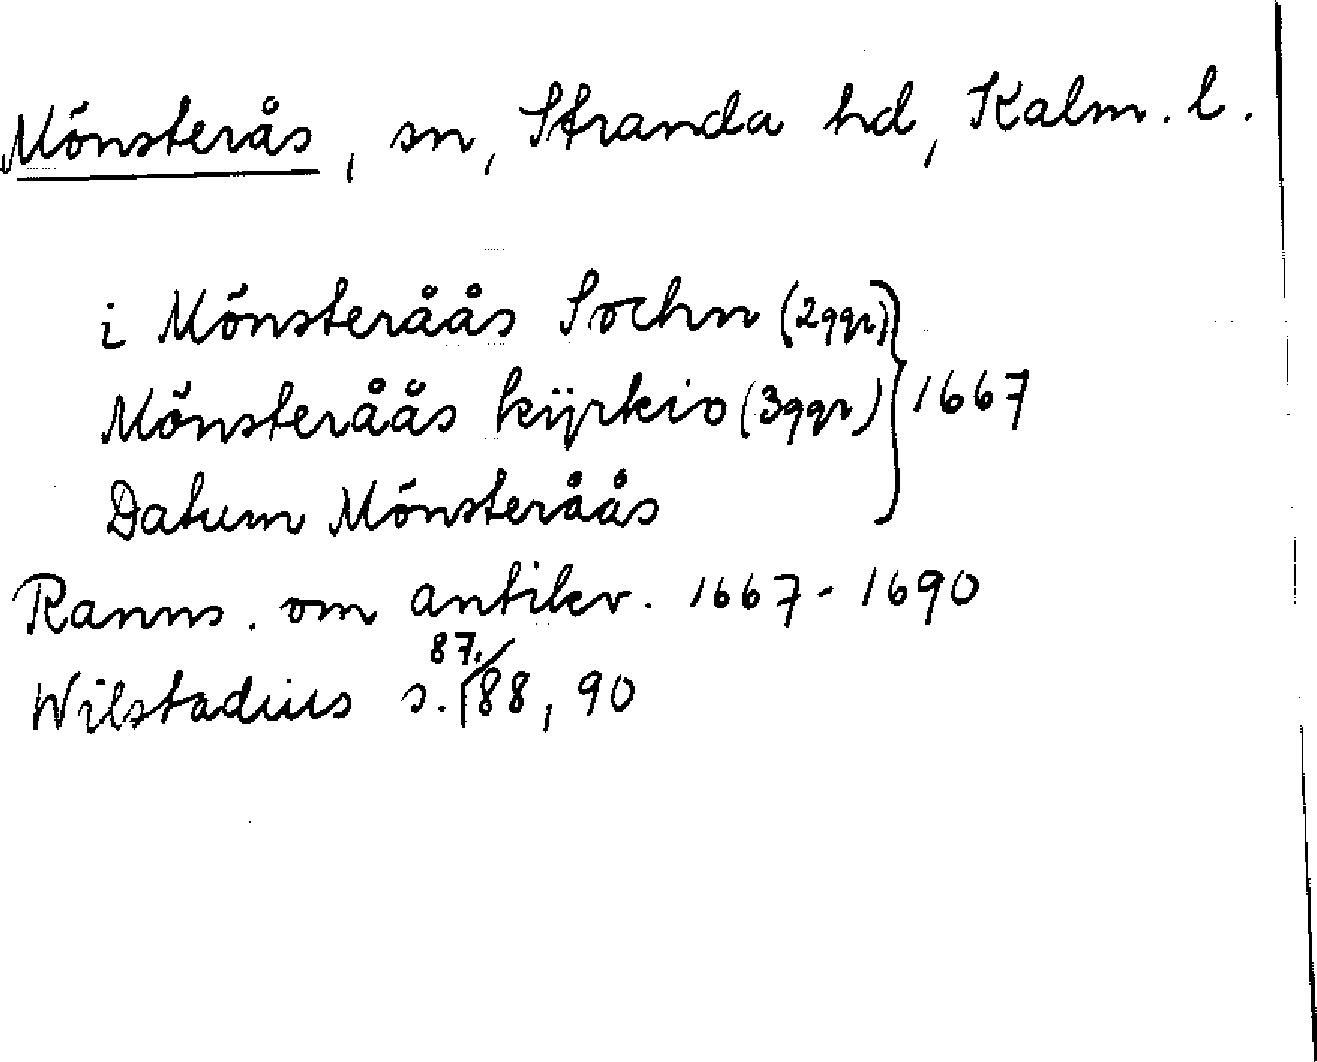 Mönsterås, sn, Stranda hd, Kalm. l.
i Mönsteråås Sochn (2ggr)
Mönsteråås kÿrkio (3ggr) } 1667
Datum Mönsteråås
Ranns. om antikv. 1667-1690
Wilstadius s. 87, 88, 90